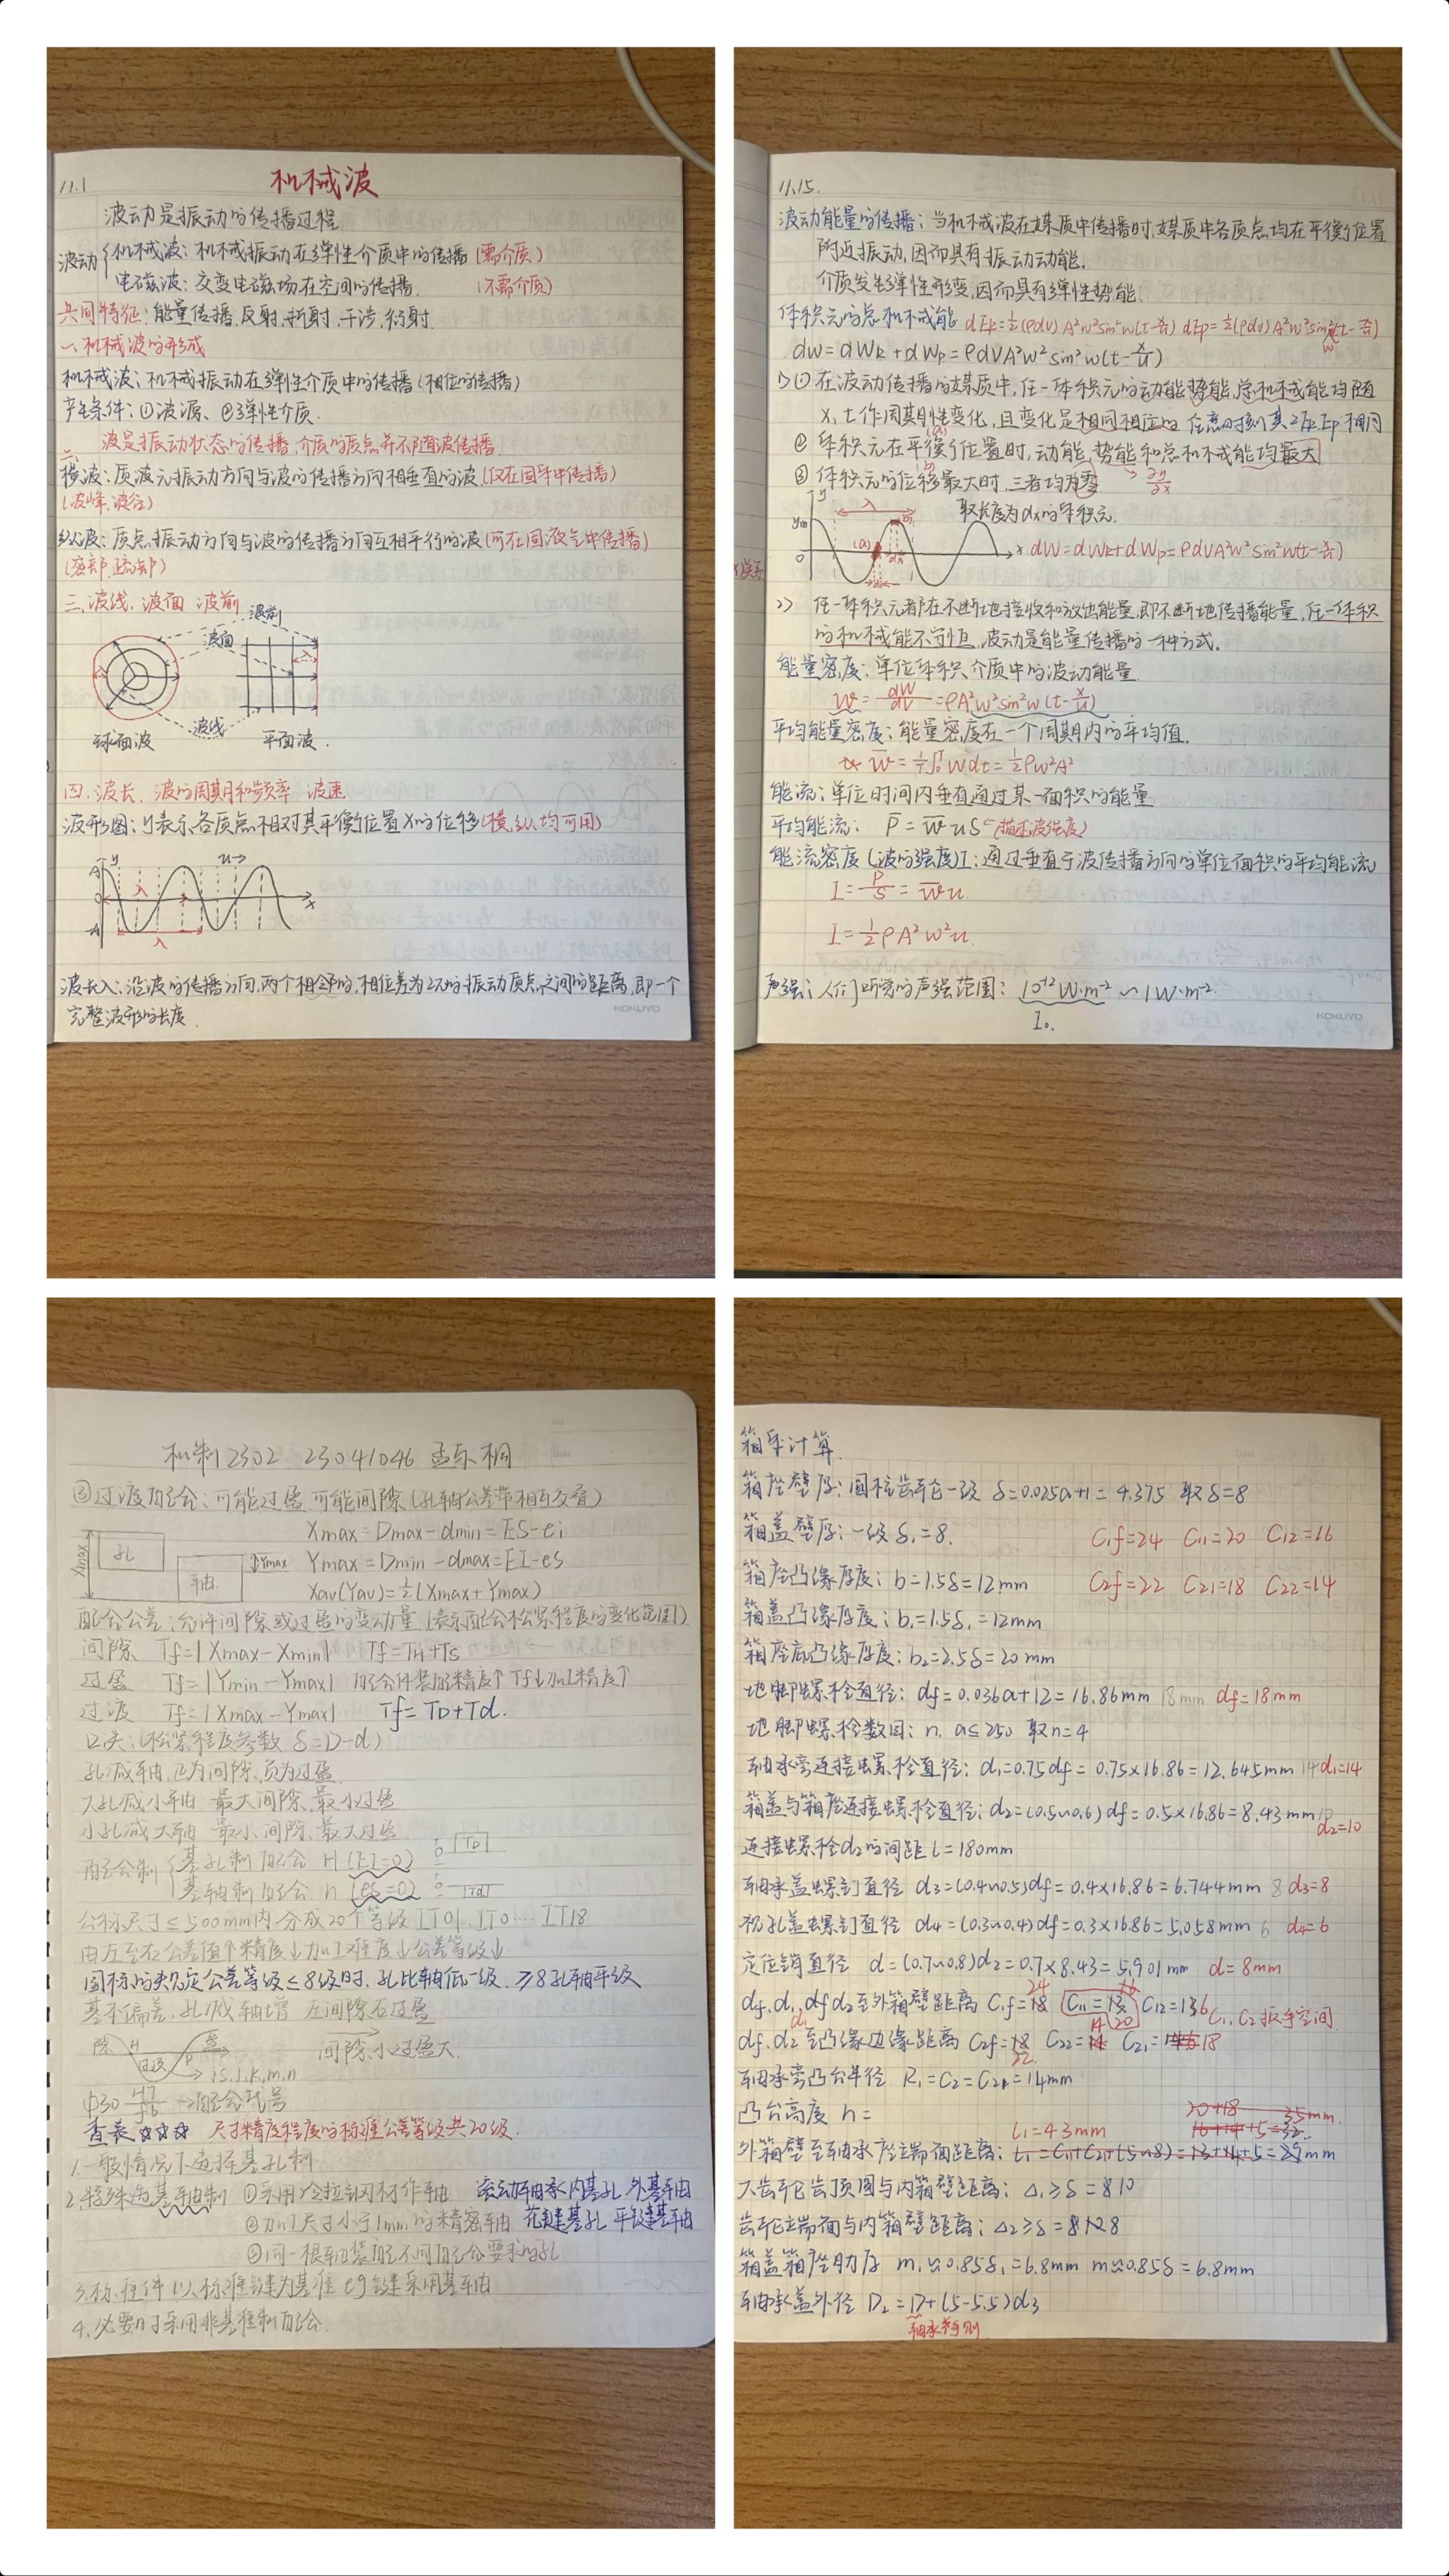 11.1
机械波
波动是振动的传播过程
波动
机械波：机械振动在弹性介质中的传播（需介质）
电磁波：交变电磁场在空间的传播.（不需介质）
共同特征：能量传播,反射,折射,干涉,衍射.
一、机械波的形成
机械波：机械振动在弹性介质中的传播（相位的传播）
产生条件：①波源、②弹性介质.
波是振动状态的传播,介质的质点并不随波传播.
二、
横波：质波元振动方向与波的传播方向相垂直的波（仅在固体中传播）
（波峰,波谷）
纵波：质点振动方向与波的传播方向互相平行的波（可在固液气中传播）
（密部,疏部）
三、波线、波面 波前
波前
波面
波线
球面波
平面波.
四、波长、波的周期和频率 波速
波形图：y表示各质点相对其平衡位置X的位移（横、纵均可用）
A y u→
λ
0 x
-A λ
波长λ：沿波的传播方向,两个相邻的,相位差为2π的振动质点之间的距离,即一个
完整波形的长度.
KOKUYO
11.15.
波动能量的传播：当机械波在媒质中传播时,媒质中各质点均在平衡位置
附近振动,因而具有振动动能.
介质发生弹性形变,因而具有弹性势能.
体积元的总机械能 dEk=½(ρdv)A²w²sin²w(t-x/u) dEp=½(ρdv)A²w²sin²w(t-x/u)
dw=dWk+dWp=ρdVA²w²sin²w(t-x/u)
1>①在波动传播的媒质中,任一体积元的动能,势能,总机械能均随
x,t作周期性变化,且变化是相同相位的 任意时刻其Ek,Ep相同
②体积元在平衡位置时,动能,势能和总机械能均最大
③体积元的位移最大时,三者均为零 → ∂y/∂x
取长度为dx的体积元.
dW=dWk+dWp=ρdVA²w²sin²w(t-x/u)
2> 任一体积元都在不断地接收和放出能量,即不断地传播能量,任一体积
的机械能不守恒,波动是能量传播的一种方式.
能量密度：单位体积介质中的波动能量.
w=dW/dV=ρA²w²sin²w(t-x/u)
平均能量密度：能量密度在一个周期内的平均值.
w̄=1/T∫₀ᵀwdt=½ρw²A²
能流：单位时间内垂直通过某一面积的能量
平均能流： P̄=w̄uS（描述波强度）
能流密度（波的强度）I：通过垂直于波传播方向的单位面积的平均能流
I=P̄/S=w̄u.
I=½ρA²w²u.
声强：人们听觉的声强范围：10⁻¹²W·m⁻²~1W·m⁻².
I₀.
KOKUYO
机制2302 23041046 孟乐桐
③过渡配合：可能过盈,可能间隙（孔轴公差带相互交叠）
Xmax=Dmax-dmin=ES-ei
孔 轴 Xmax Ymax
Ymax=Dmin-dmax=EI-es
Xav(Yav)=½(Xmax+Ymax)
配合公差：允许间隙或过盈的变动量（表示配合松紧程度的变化范围）
间隙 Tf=|Xmax-Xmin| Tf=TH+TS
过盈 Tf=|Ymin-Ymax| 配合件装配精度↑Tf↓加工精度↑
过渡 Tf=|Xmax-Ymax| Tf=TD+Td.
口诀：（松紧程度参数 δ=D-d）
孔减轴,正为间隙,负为过盈.
大孔减小轴 最大间隙、最小过盈
小孔减大轴 最小间隙、最大过盈.
配合制
基孔制配合 H（EI=0） TD
基轴制配合 h（es=0） Td
公称尺寸≤500mm内分成20个等级 IT01,IT0……IT18
由左至右公差值↑精度↓加工难度↓公差等级↓
国标的规定公差等级≤8级时,孔比轴低一级.≥8孔轴平级
基本偏差,孔减轴增 左间隙右过盈
间隙小过盈大.
隙 H 盈 过渡 P
js.j.k.m.n
配合代号
查表☆☆☆ 尺寸精度程度的标准公差等级共20级.
1.一般情况下选择基孔制
2.特殊选基轴制 ①采用冷拉钢材作轴 滚动轴承内基孔 外基轴
②加工尺寸小于1mm的精密轴 花键基孔 平键基轴
③同一根轴装配不同配合要求的孔
3.标准件以标准键为基准 eg键采用基轴
4.必要时采用非基准制配合.
箱体计算.
箱座壁厚：圆柱齿轮一级 δ=0.025a+1=4.375 取δ=8
箱盖壁厚：一级δ₁=8.
C1f=24 C11=20 C12=16
箱座凸缘厚度：b=1.5δ=12mm
C2f=22 C21=18 C22=14
箱盖凸缘厚度：b₁=1.5δ₁=12mm
箱座底凸缘厚度：b₂=2.5δ=20mm
地脚螺栓直径：df=0.036a+12=16.86mm 18mm df=18mm
地脚螺栓数目：n. a≤250 取n=4
轴承旁连接螺栓直径：d₁=0.75df=0.75×16.86=12.645mm 14 d₁=14
箱盖与箱座连接螺栓直径：d₂=(0.5~0.6)df=0.5×16.86=8.43mm
d₂=10
连接螺栓d₂的间距 l=180mm
轴承盖螺钉直径 d₃=(0.4~0.5)df=0.4×16.86=6.744mm 8 d₃=8
视孔盖螺钉直径 d₄=(0.3~0.4)df=0.3×16.86=5.058mm 6 d₄=6
定位销直径 d=(0.7~0.8)d₂=0.7×8.43=5.901mm d=8mm
df.d₁,d₂至外箱壁距离 C1f=18 24 C11=18 20 C12=16
C₁、C₂扳手空间
df.d₂至凸缘边缘距离 C2f=18 22 C22=14 C21=18
轴承旁凸台半径 R₁=C₂=14mm
凸台高度 h=
20+18 35mm.
l₁=43mm 16+14+5=35
外箱壁至轴承座端面距离：l₁=C11+C21+(5~8)=13+11+5=29mm
大齿轮齿顶圆与内箱壁距离：Δ₁≥δ=8 10
齿轮端面与内箱壁距离：Δ₂≥δ=8 8
箱盖箱座肋厚 m₁≈0.85δ₁=6.8mm m≈0.85δ=6.8mm
轴承盖外径 D₂=D+(5-5.5)d₃